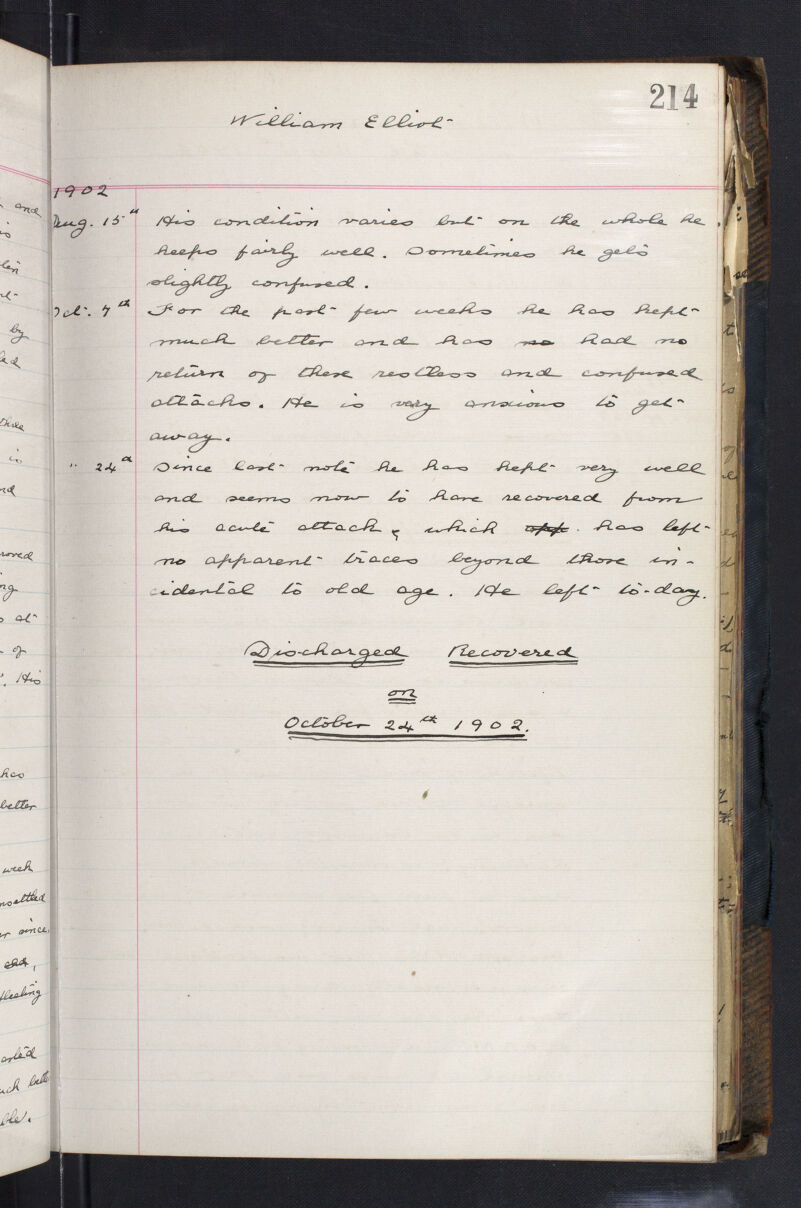 214
William Elliot
1902
Aug. 15th His condition varies but on the whole he
keeps fairly well. Sometimes he gets
slightly confused.
Oct. 7th For the past few weeks he has kept
much better and has no had no
return of these restless and confused
attacks. He is very anxious to get
away.
" 24th Since last note he has kept very well
and seems now to have recovered from
his acute attack, which app. has left
no apparent traces beyond those in-
cidental to old age. He left to-day.
Discharged Recovered
on
October 24th 1902.